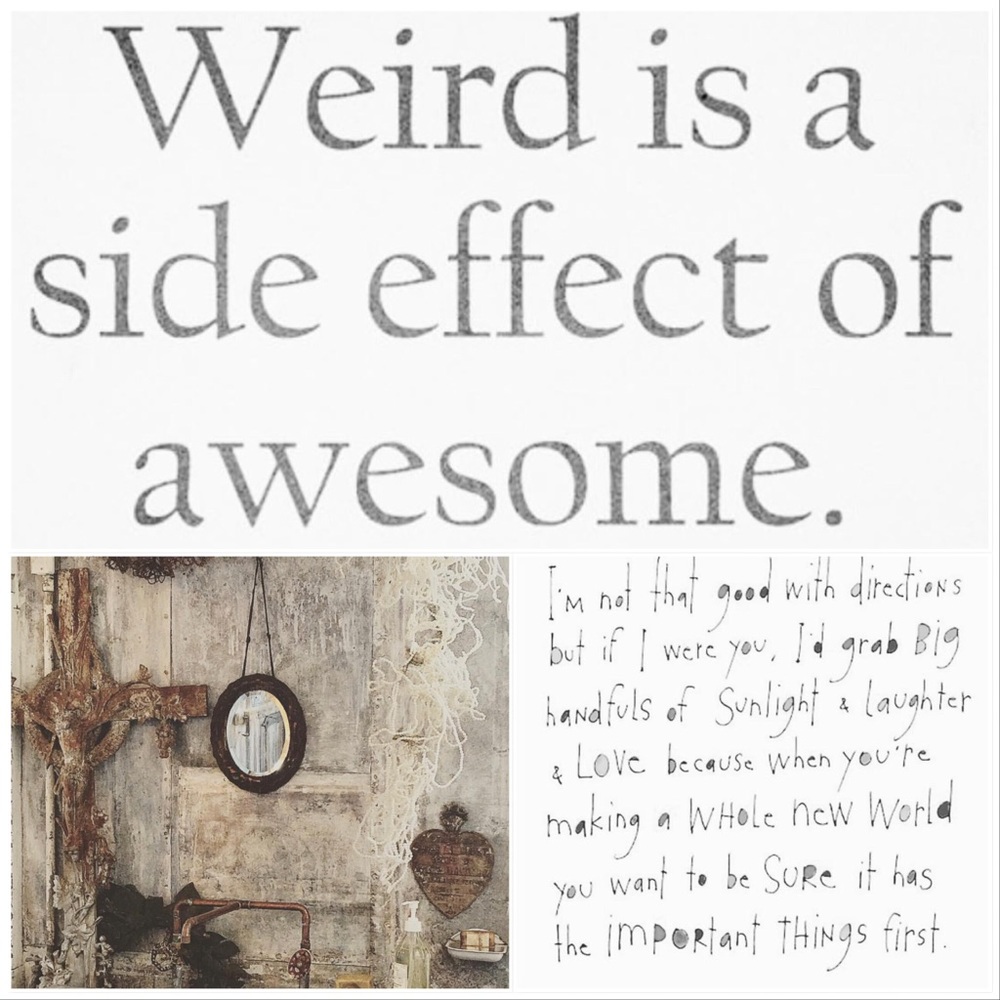 Weird is a
side effect of
awesome.
I'm not that good with directions
but if I were you, I'd grab Big
handfuls of Sunlight & laughter
& LOVE because when you're
making a WHole new World
you want to be SURe it has
the ImPORtant THINgs first.